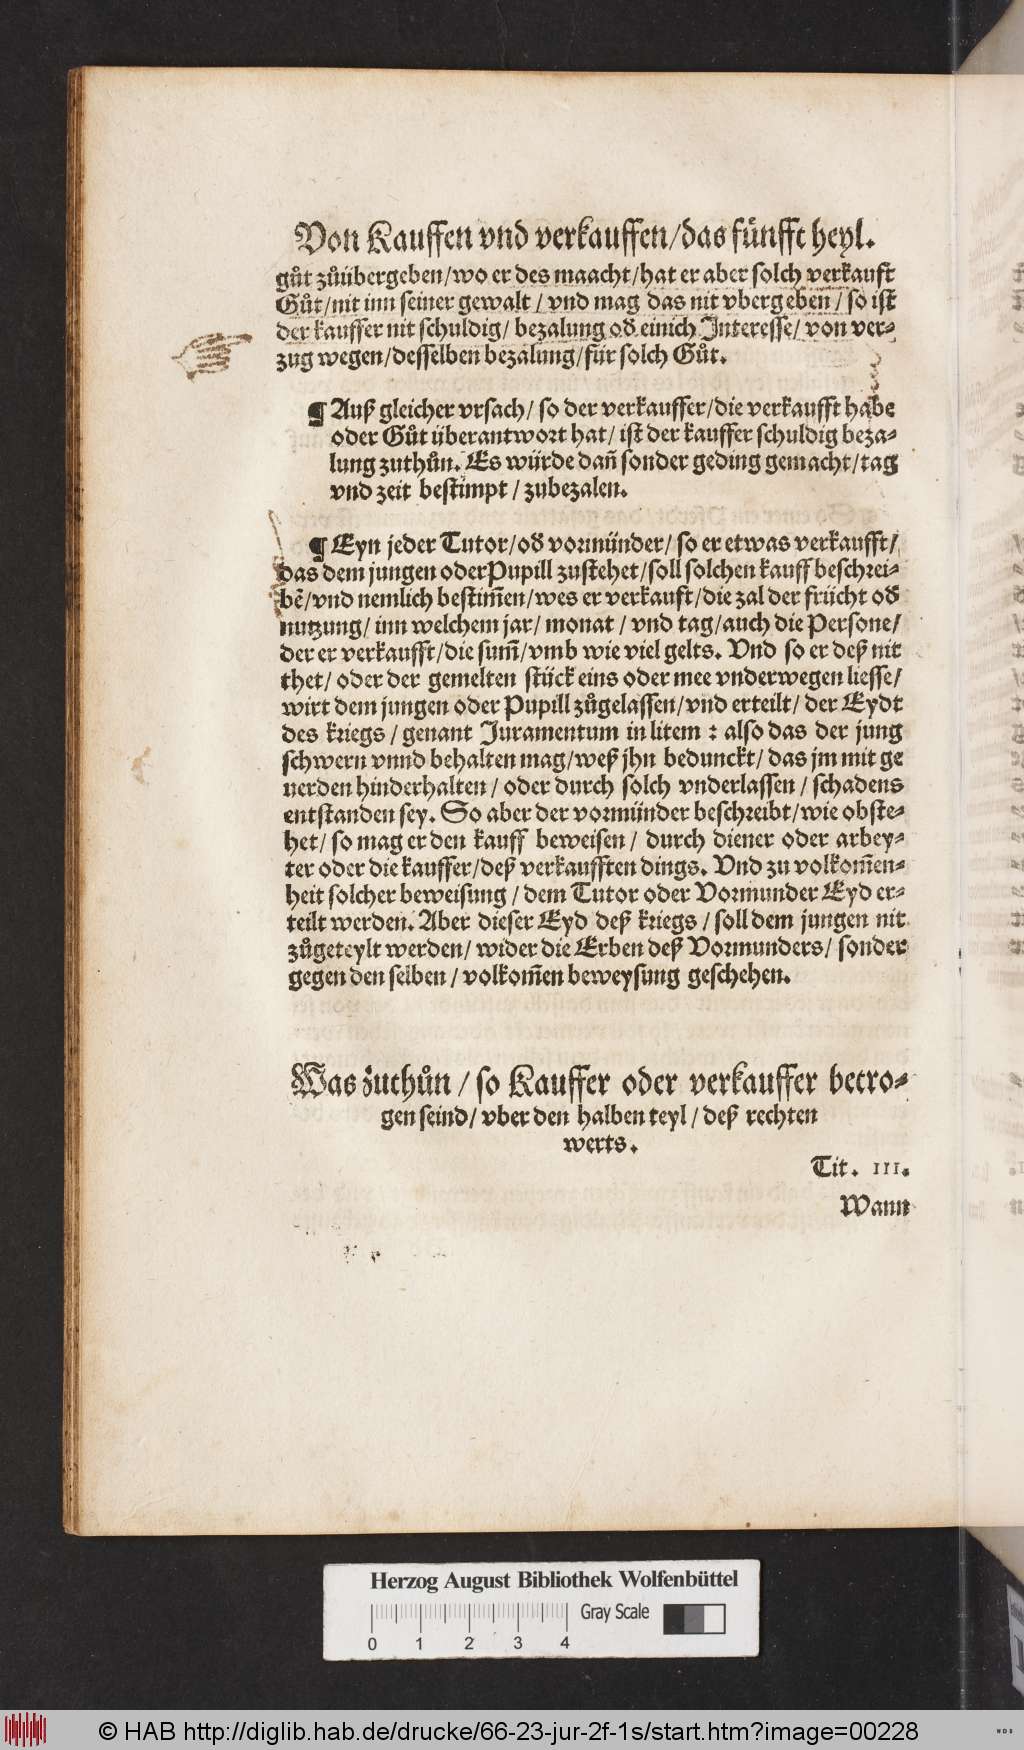 Von Kauffen vnd verkauffen/das fünfft heyl.
gůt zůübergeben/wo er des maacht/hat er aber solch verkauft
Gůt/nit inn seiner gewalt/vnd mag das nit vbergeben/so ist
der kauffer nit schuldig/bezalung oď einich Interesse/von ver⸗
zug wegen/desselben bezalung/für solch Gůt.
¶ Auß gleicher vrsach/so der verkauffer/die verkaufft habe
oder Gůt überantwort hat/ist der kauffer schuldig beza⸗
lung zuthůn. Es würde dañ sonder geding gemacht/tag
vnd zeit bestimpt/zubezalen.
¶ Eyn jeder Tutor/oď vormünder/so er etwas verkaufft/
das dem jungen oder Pupill zustehet/soll solchen kauff beschrei⸗
bẽ/vnd nemlich bestim̃en/wes er verkauft/die zal der frücht oď
nutzung/inn welchem jar/monat/vnd tag/auch die Persone/
der er verkaufft/die sum̃/vmb wie viel gelts. Vnd so er deß nit
thet/oder der gemelten stück eins oder mee vnderwegen liesse/
wirt dem jungen oder Pupill zůgelassen/vnd erteilt/der Eydt
des kriegs/genant Juramentum in litem : also das der jung
schwern vnnd behalten mag/weß jhn bedunckt/das jm mit ge
uerden hinderhalten/oder durch solch vnderlassen/schadens
entstanden sey. So aber der vormünder beschreibt/wie obste⸗
het/so mag er den kauff beweisen/durch diener oder arbey⸗
ter oder die kauffer/deß verkaufften dings. Vnd zu volkom̃en⸗
heit solcher beweisung/dem Tutor oder Vormunder Eyd er⸗
teilt werden. Aber dieser Eyd deß kriegs/soll dem jungen nit
zůgeteylt werden/wider die Erben deß Vormunders/sonder
gegen den selben/volkom̃en beweysung geschehen.
Was zuthůn/so Kauffer oder verkauffer betro⸗
gen seind/vber den halben teyl/deß rechten
werts.
Tit. III.
Wann
Herzog August Bibliothek Wolfenbüttel
Gray Scale
0 1 2 3 4
© HAB http://diglib.hab.de/drucke/66-23-jur-2f-1s/start.htm?image=00228